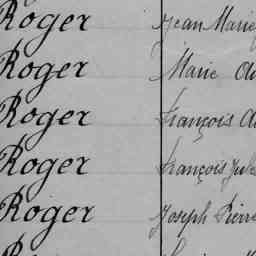 Roger Jean Marie
Roger Marie
Roger François
Roger François
Roger Joseph Pierre